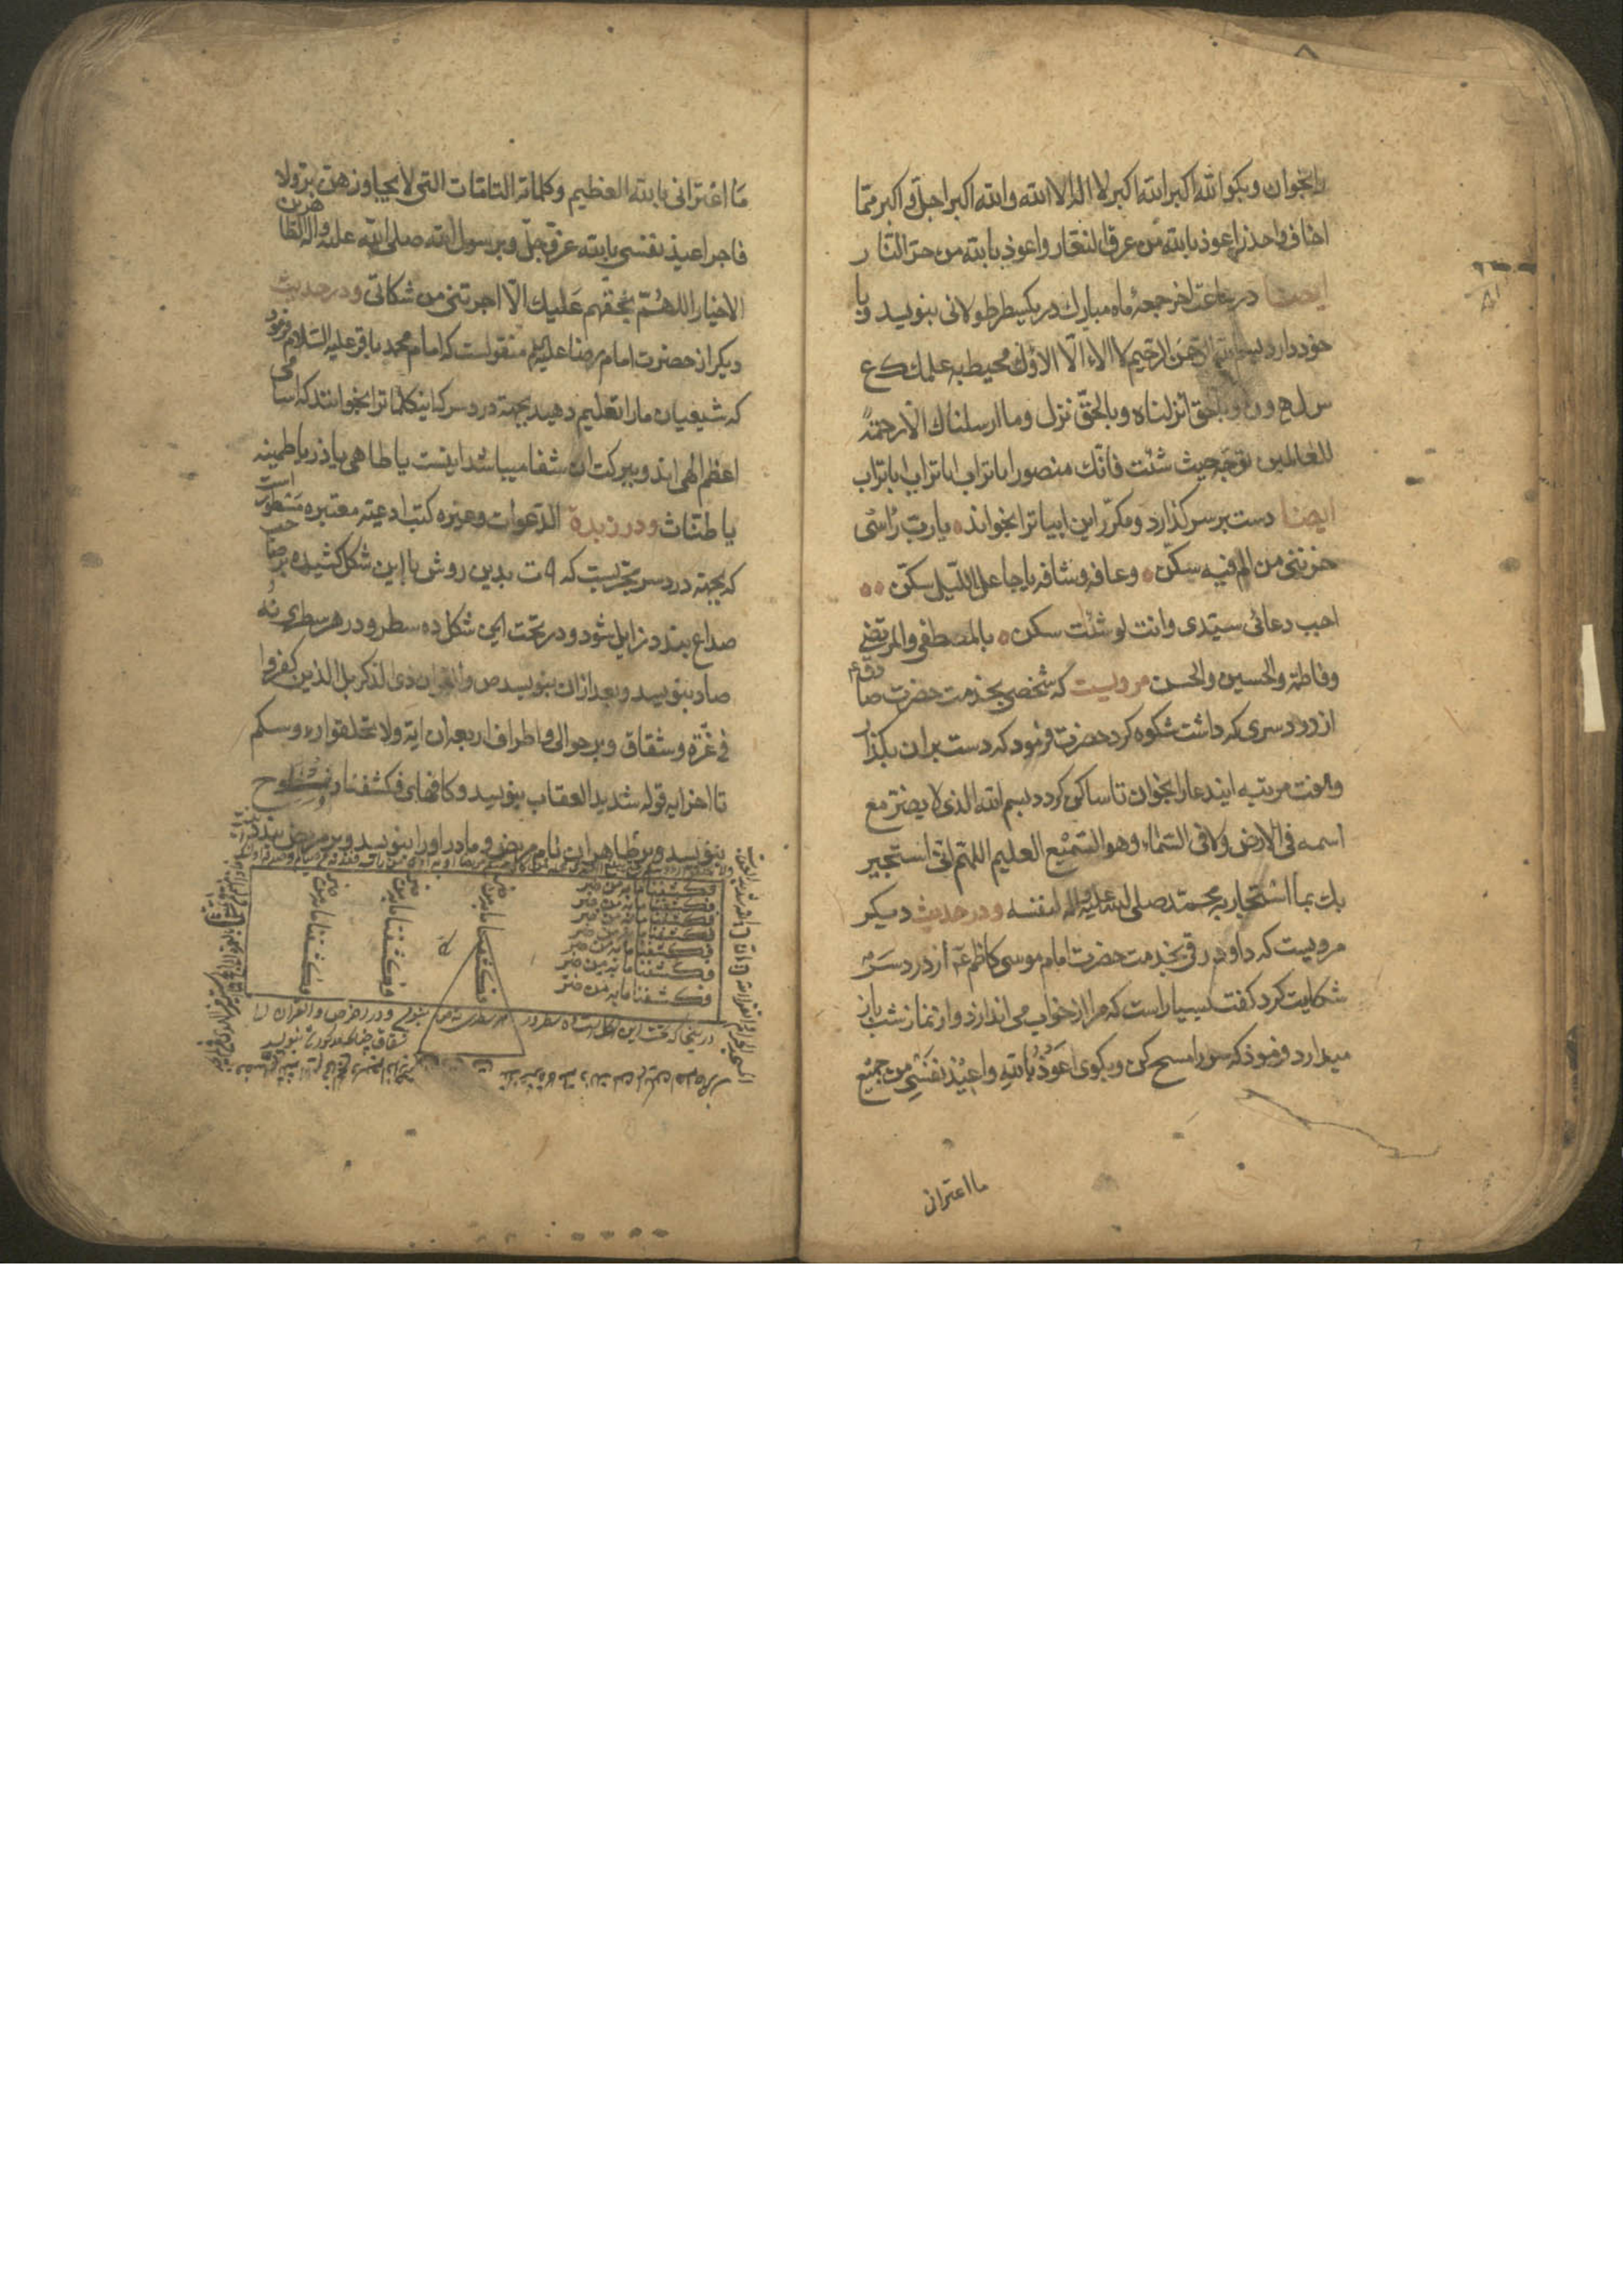 بخوان و بکو الله اکبر الله اکبر لا اله الا الله والله اکبر اجلّ و اکبر ممّا
اخاف و احذر اعوذ بالله من عرق النعّار و اعوذ بالله من حرّ النّار
ایضا در ساعت اخر جمعهٔ ماه مبارک در یکسطر طولانی بنویسد و با
خود دارد بسم الله الرحمن الرحیم لا الاء الّا الاؤک محیط به علمک ک ع
س ل ح و ن و بالحق انزلناه و بالحقّ نزل و ما ارسلناک الّا رحمةً
للعالمین توجّه حیث شئت فانّک منصور اباتراب اباتراب اباتراب
ایضا دست بر سر کذارد و مکرّر این ابیاترا بخواند یا ربّ راسی
ضرّنی من الم فیه سکن وعافه و شافه یا جاعل اللّیل سکن
اجب دعائی سیّدی وانت لو شئت سکن بالمصطفی والمرتضی
وفاطمة والحسین والحسن مرویست که شخصی بخدمت حضرت صادق ع
از درد سری که داشت شکوه کرد حضرت فرمود که دست بر ان بکذار
و هفت مرتبه ایندعا را بخوان تا ساکن کردد بسم الله الذی لا یضرّ مع
اسمه فی الارض ولا فی السّماء وهو السّمیع العلیم اللهمّ انّی استجیر
بک بما استجار به محمّد صلی الله علیه واله لنفسه و در حدیث دیکر
مرویست که داود رقی بخدمت حضرت امام موسی کاظم ع از درد سر
شکایت کرد کفت بسیار است که مرا از خواب می اندازد و از نماز شب باز
میدارد فرمود که سر را مسح کن و بکوی اعوذ بالله واعیذ نفسی من جمیع
ما اعترانی
ما اعترانی بالله العظیم وکلماته التامّات التی لا یجاوزهن برّ ولا
فاجر اعیذ نفسی بالله عزّ و جلّ و برسول الله صلی الله علیه واله الطاهرین
الاخیار اللهمّ بحقّهم علیک الّا اجرتنی من شکاتی و در حدیث
دیکر از حضرت امام رضا علیه السلام منقولست که امام محمد باقر علیه السّلام فرمود
که شیعیان ما را تعلیم دهید بجهة درد سر که اینکلماترا بخوانند که اسامی
اعظم الهی اند و ببرکت ان شفا میباشد اینست یا طاهی یا ذر یا طمینه
یا طنّات و در زبدة الدّعوات و غیره کتب ادعیّه معتبره مسطور است
که بجهة درد سر مجرّبست که ٩ ت بدین روش با این شکل کشیده بر صاحب
صداع بندد زایل شود و در تحت این شکل ده سطر و در هر سطری نه
صاد بنویسد و بعد از ان بنویسد ص والقران ذی الذکر بل الذین کفروا
فی عزّة وشقاق و بر حوالی و اطراف اربعه ان ایهٔ ولا تحلقوا رءوسکم
تا اخر ایه قوله شدید العقاب بنویسد و کافهای فکشفنا را مسطوح
بنویسد و بر ظاهر ان نام مریض و مادر او را بنویسد و بر مریض بندد
فکشفنا ما به من ضر
فکشفنا ما به من ضر
فکشفنا ما به من ضر
فکشفنا ما به من ضر
فکشفنا ما به من ضر
فکشفنا ما به من ضر
فکشفنا ما به من ضر
فکشفنا ما به من ضر
فکشفنا ما به من ضر
فکشفنا ما به من ضر